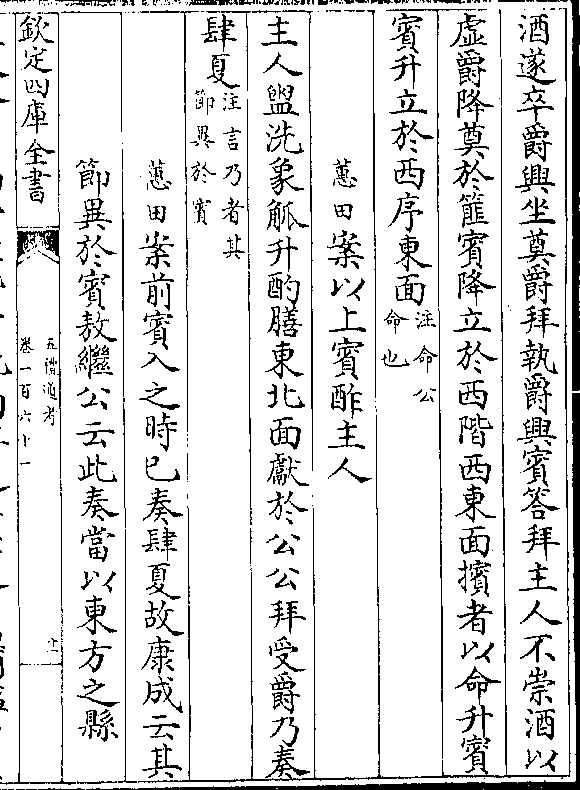 酒遂卒爵興坐奠爵拜執爵興賓答拜主人不崇酒以
虛爵降奠於篚賓降立於西階西東面擯者以命升賓
賓升立於西序東面注命公
命也
蕙田案以上賓酢主人
主人盥洗象觚升酌膳東北面獻於公公拜受爵乃奏
肆夏注言乃者其
節異於賓
蕙田案前賓入之時已奏肆夏故康成云其
節異於賓敖繼公云此奏當以東方之縣
欽定四庫全書
五禮通考
卷一百六十一